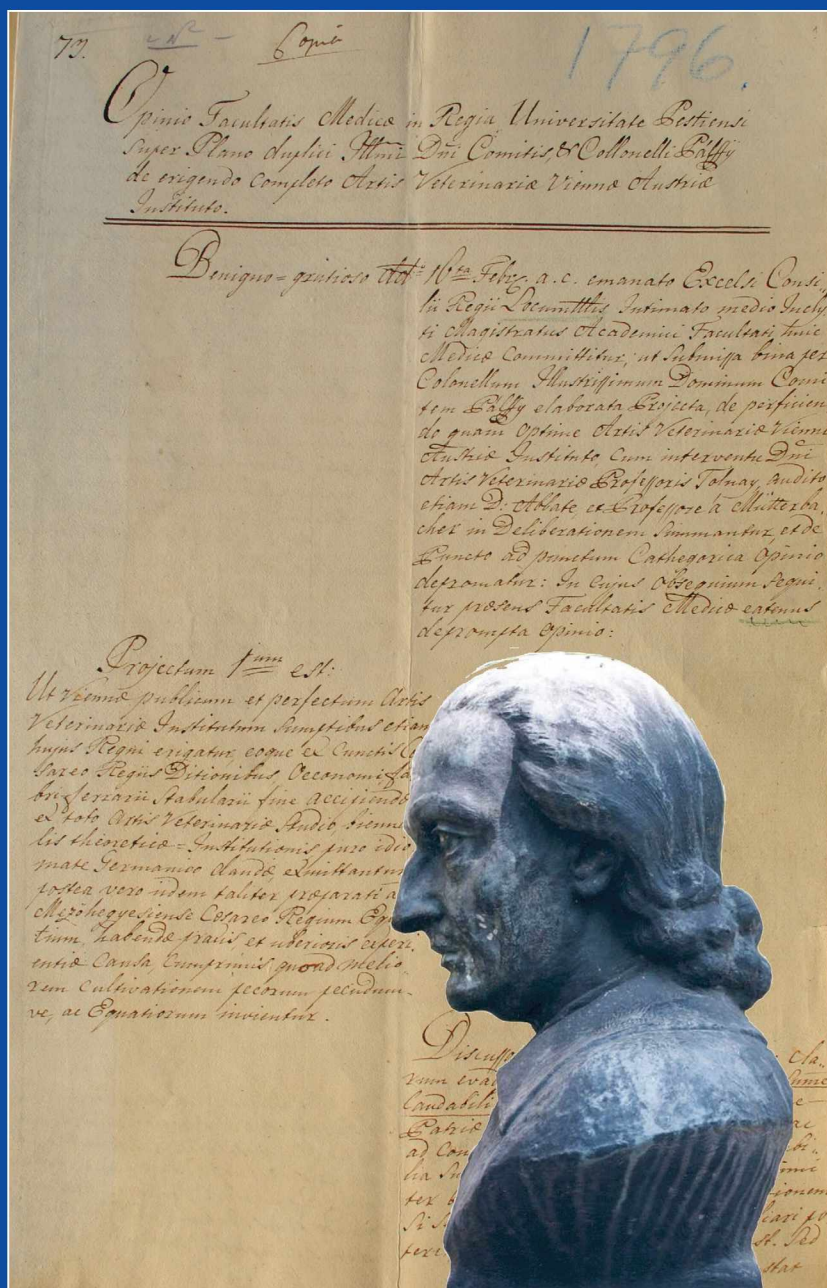 79.
Copia
1796.
Opinio Facultatis Medicæ in Regia Universitate Pestiensi
super Plano duplici Illmi Dni Comitis, & Collonelli Palffy
de erigendo completo Artis Veterinariæ Viennæ Austriæ
Instituto.
Benigno=gratioso 16ta Febr. a. c. emanato Excelsi Consi,,
lii Regii Locumttlis Intimato medio Incly
ti Magistratus Academici Facultati huic
Medicæ Committitur, ut Submissa bina per
Colonellum Illustrissimum Dominum Comi
tem Palffy elaborata Projecta, de perficien
do quam optime Artis Veterinariæ Viennæ
Austriæ Instituto, cum interventu Dni
Artis Veterinariæ Professoris Tolnay, audito
etiam D. Abbate et Professore a Mitterba,
cher in Deliberationem Summantur, et de
Puncto ad punctum Cathegorica Opinio
depromatur: In cujus obsequium sequi,
tur præsens Facultatis Medicæ eatenus
deprompta opinio:
Projectum 1um est:
Ut Viennæ publicum et perfectum Artis
Veterinariæ Institutum Sumptibus etiam
hujus Regni erigatur, eoque ex Cunctis
sareo Regiis Ditionibus Oeconomi
bri ferrarii Stabularii fine accipiendæ
ex toto Artis Veterinariæ Studio, bienna
lis theoreticæ=Institutionis puro idio
mate Germanico dandæ exmittantur
postea vero iidem taliter præparati a
Mezöhegyesiense Cæsareo Regium Equ
tium, habendæ praxis et uberioris experi,
entiæ Causa, Cumprimis quoad melio
rem cultivationem pecorum pecudum-
ve, ac Equatiorum invientur.
cla,,
rum eva
Laudabili
Patriæ ac
ad Con bi,,
lia Su
ter ionem
Si
teri st. Sed
stat